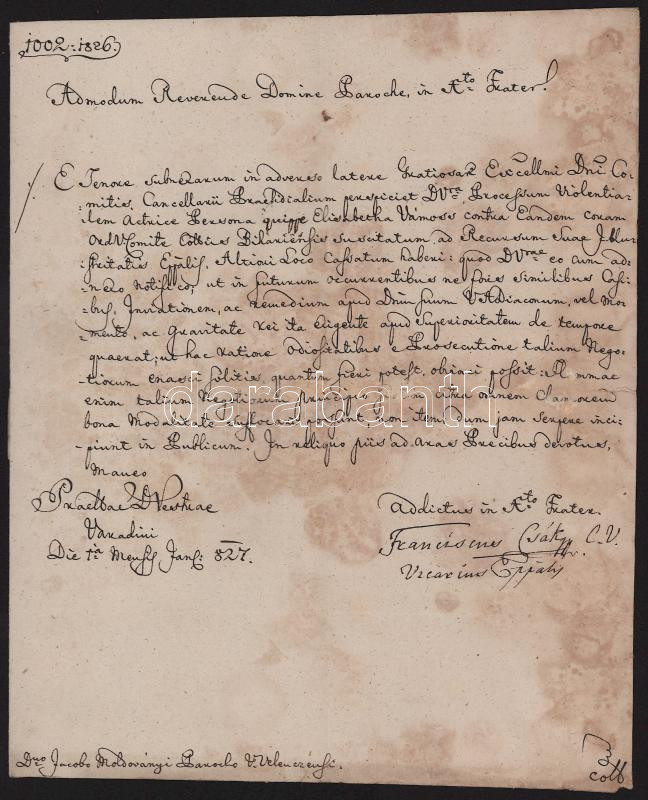 1002.-1826.
Admodum Reverende Domine Paroche, in Xto Frater!
E Tenore subnexarum in adverso latere Gratiosar Excellmi Dni Co-
mitis, Cancellarii Praesidialium perspiciet DVra Processum Violentia-
lem Actrice Persona quippe Elisabetha Vámoss contra Eandem coram
Ord VComite Cottus Bihariensis suscitatum, ad Recursum Suae Illu-
stritatis Eppalis, Altiori Loco Cassatum haberi: quod DVrae eo cum ad-
nexo notifico, ut in futurum occurrentibus ne fors similibus Casi-
bus, Invationem, ac remedium apud Dnum suum VAdiaconum, vel mo-
mento, ac gravitate rei ita exigente apud Superioritatem de tempore
quaerat; ut hac ratione odiositatibus e Prosecutione talium Nego-
tiorum enasci solitis, quantum fieri potest, obviari possit:
enim talium Negotiorum Principiis citra omnem clamorem
bona Modalitate suffocari possint, non item, dum jam serpere inci-
piunt in Publicum. In reliquo piis ad aras Precibus devotus,
maneo
Praettae DVestrae
Varadini
Die 1a Mensis Jan: 827.
Addictus in Xto Frater.
Franciscus Csáky C.V.
Vicarius Eppalis
Dno Jacobo Moldoványi Parocho V. Velenczensi.
3
coll
darabanth